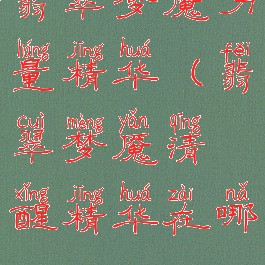 翡翠梦魇力
liàng jīng huá fěi
量精华(翡
cuì mèng yǎn qīng
翠梦魇清
xǐng jīng huá zài nǎ
醒精华在哪